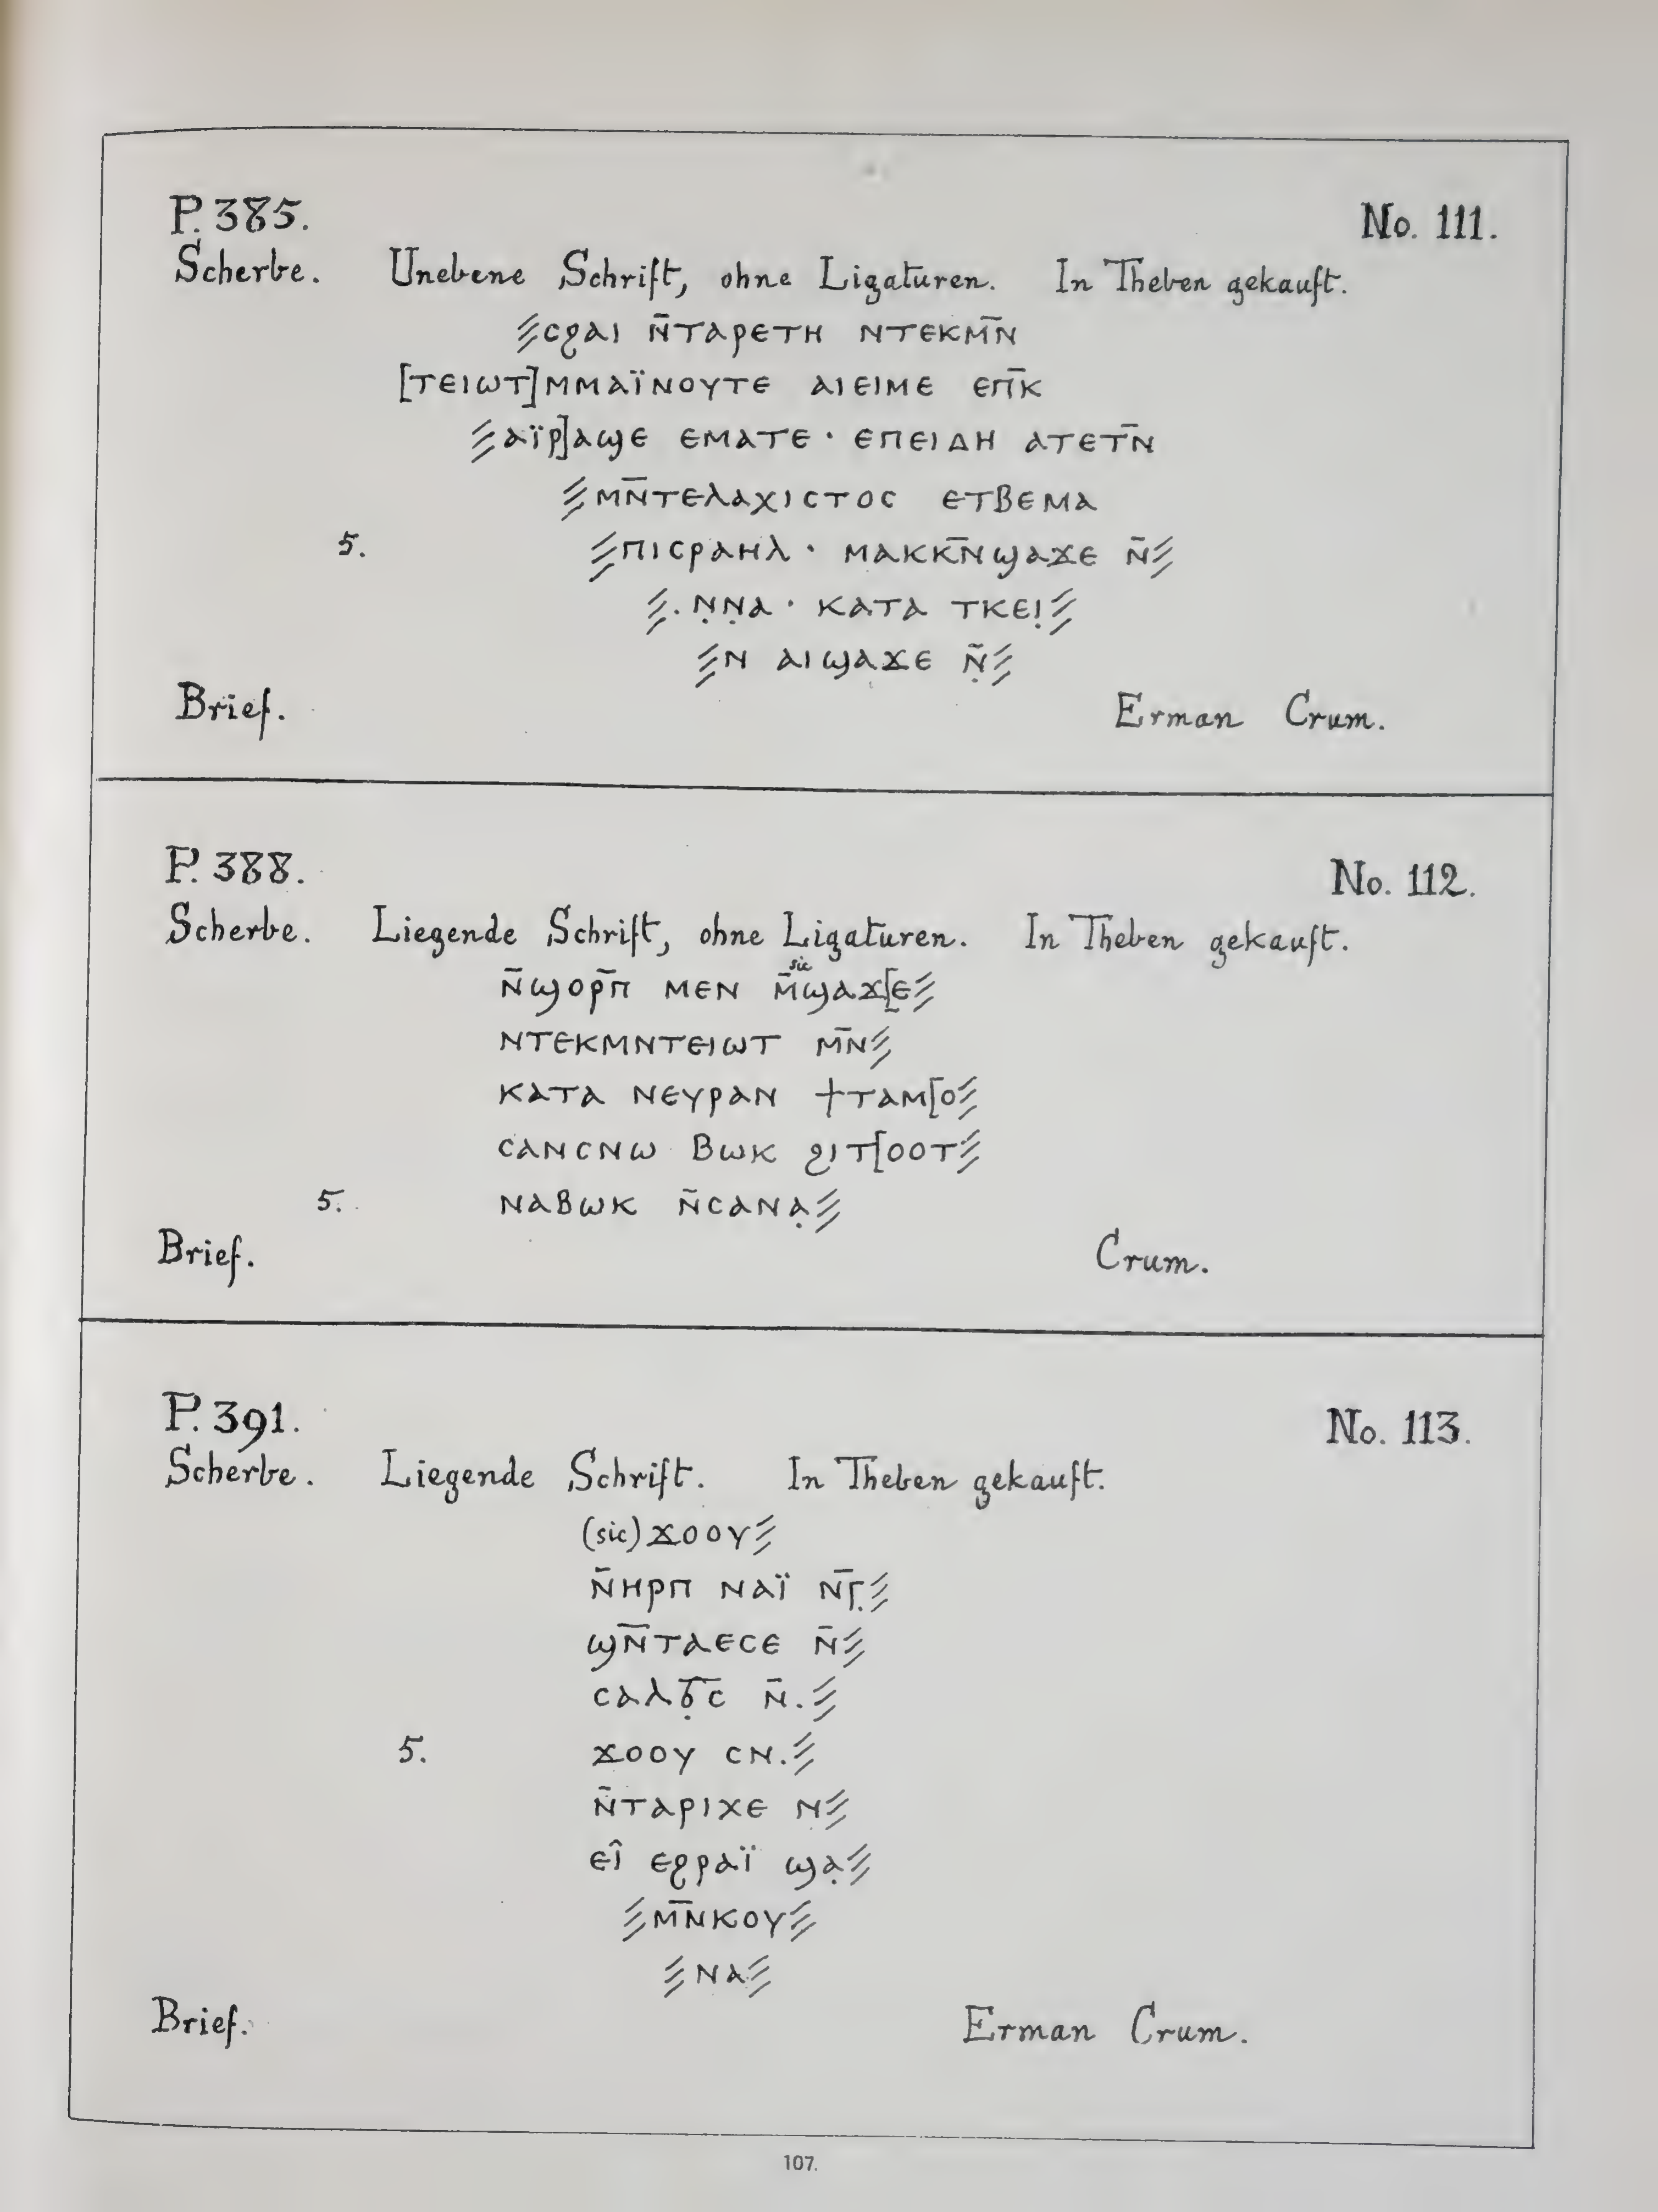 P. 385. No. 111.
Scherbe. Unebene Schrift, ohne Ligaturen. In Theben gekauft.
⫽ⲥϩⲁⲓ ⲛ̄ⲧⲁⲣⲉⲧⲏ ⲛⲧⲉⲕⲙ̄ⲛ̄
[ⲧⲉⲓⲱⲧ]ⲙⲙⲁⲓ̈ⲛⲟⲩⲧⲉ ⲁⲓⲉⲓⲙⲉ ⲉⲡ̄ⲕ̄
⫽ⲁⲓ̈ⲣ]ⲁϣⲉ ⲉⲙⲁⲧⲉ · ⲉⲡⲉⲓⲇⲏ ⲁⲧⲉⲧ̄ⲛ̄
⫽ⲙ̄ⲛ̄ⲧⲉⲗⲁⲭⲓⲥⲧⲟⲥ ⲉⲧⲃⲉⲙⲁ
5. ⫽ⲡⲓⲥⲣⲁⲏⲗ · ⲙⲁⲕⲕ̄ⲛ̄ϣⲁϫⲉ ⲛ̄⫽
⫽. ⲛ̣ⲛ̣ⲁ · ⲕⲁⲧⲁ ⲧⲕⲉⲓ̣⫽
⫽ⲛ ⲁⲓϣⲁϫⲉ ⲛ̣̄⫽
Brief. Erman Crum.
P. 388. No. 112.
Scherbe. Liegende Schrift, ohne Ligaturen. In Theben gekauft.
sic
ⲛ̄ϣⲟⲣ̄ⲡ̄ ⲙⲉⲛ ⲙ̄ϣⲁϫ[ⲉ⫽
ⲛⲧⲉⲕⲙⲛⲧⲉⲓⲱⲧ ⲙ̄ⲛ̄⫽
ⲕⲁⲧⲁ ⲛⲉⲩⲣⲁⲛ ϯⲧⲁⲙ[ⲟ⫽
ⲥⲁⲛⲥⲛⲱ ⲃⲱⲕ ϩⲓⲧ[ⲟⲟⲧ⫽
5. ⲛⲁⲃⲱⲕ ⲛ̄ⲥⲁⲛⲁ̣⫽
Brief. Crum.
P. 391. No. 113.
Scherbe. Liegende Schrift. In Theben gekauft.
(sic) ϫⲟⲟⲩ⫽
ⲛ̄ⲏⲣⲡ ⲛⲁⲓ̈ ⲛ̄ⲅ̄.⫽
ϣ̄ⲛ̄ⲧⲁⲉⲥⲉ ⲛ̄⫽
ⲥⲁⲗϭ̣̄ⲥ̄ ⲛ̄.⫽
5. ϫⲟⲟⲩ ⲥⲛ.⫽
ⲛ̄ⲧⲁⲣⲓⲭⲉ ⲛ⫽
ⲉⲓ̂ ⲉϩⲣⲁⲓ̈ ϣⲁ̣⫽
⫽ⲙ̄ⲛ̄ⲕⲟⲩ⫽
⫽ⲛⲁ⫽
Brief. Erman Crum.
107.